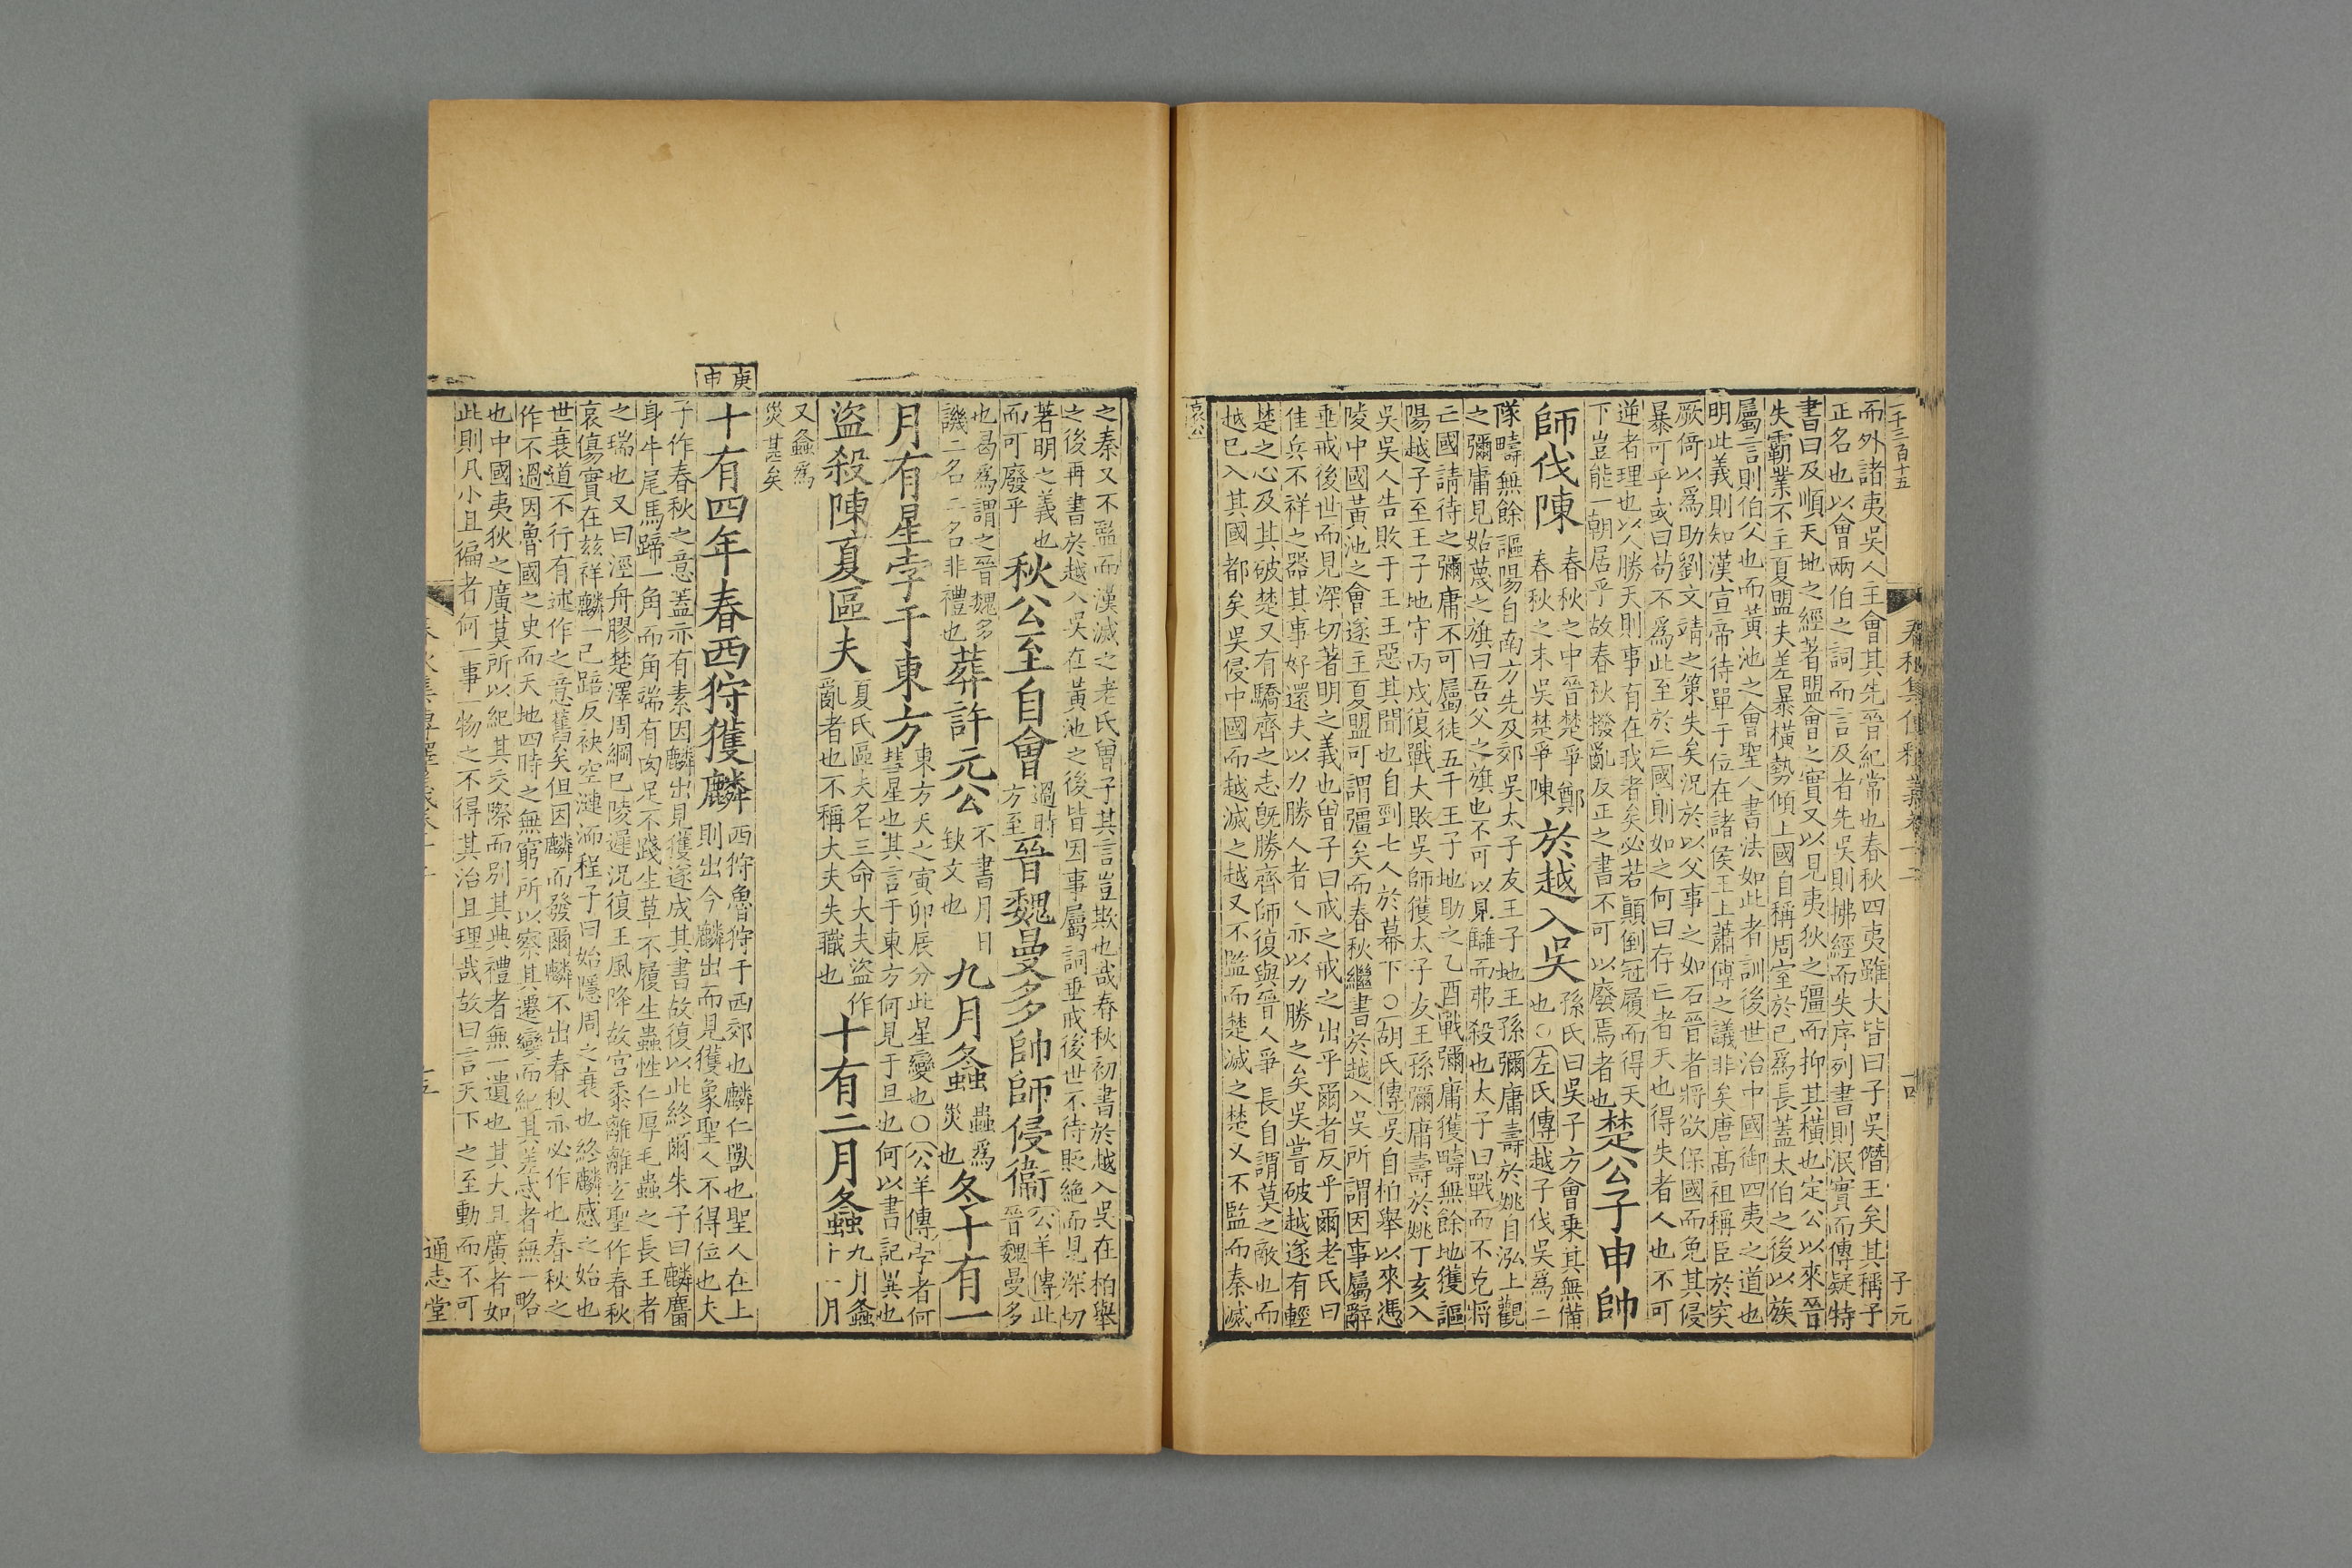 一千三百十五
子元
而外諸夷吳人主會其先晉紀常也春秋四夷雖大皆曰子吳僭王矣其稱子
正名也以會兩伯之詞而言及者先吳則拂經而失序列書則泯實而傳疑特
書曰及順天地之經著盟會之實又以見夷狄之彊而抑其橫也定公以來晉
失霸業不主夏盟夫差暴橫勢傾上國自稱周室於己爲長蓋太伯之後以族
屬言則伯父也而黃池之會聖人書法如此者訓後世治中國御四夷之道也
明此義則知漢宣帝待單于位在諸侯王上蕭傅之議非矣唐髙祖稱臣於突
厥倚以爲助劉文靖之策失矣況於以父事之如石晉者將欲保國而免其侵
暴可乎或曰苟不爲此至於亡國則如之何曰存亡者天也得失者人也不可
逆者理也以人勝天則事有在我者矣必若顛倒冠履而得天
下豈能一朝居乎故春秋撥亂反正之書不可以廢焉者也
楚公子申帥
師伐陳
春秋之中晉楚爭鄭
春秋之末吳楚爭陳
於越入吳
孫氏曰吳子方會乘其無備
也〇左氏傳越子伐吳爲二
隊疇無餘謳陽自南方先及郊吳太子友王子地王孫彌庸壽於姚自泓上觀
之彌庸見姑蔑之旗曰吾父之旗也不可以見讎而弗殺也太子曰戰而不克將
亡國請待之彌庸不可屬徒五千王子地助之乙酉戰彌庸獲疇無餘地獲謳
陽越子至王子地守丙戌復戰大敗吳師獲太子友王孫彌庸壽於姚丁亥入
吳吳人告敗于王王惡其聞也自剄七人於幕下〇胡氏傳吳自柏舉以來馮
陵中國黃池之會遂主夏盟可謂彊矣而春秋繼書於越入吳所謂因事屬辭
垂戒後世而見深切著明之義也曽子曰戒之戒之出乎爾者反乎爾老氏曰
佳兵不祥之器其事好還夫以力勝人者人亦以力勝之矣吳嘗破越遂有輕
楚之心及其破楚又有驕齊之志旣勝齊師復與晉人爭長自謂莫之敵也而
越已入其國都矣吳侵中國而越滅之越又不監而楚滅之楚又不監而秦滅
哀公
之秦又不監而漢滅之老氏曽子其言豈欺也哉春秋初書於越入吳在柏舉
之後再書於越入吳在黃池之後皆因事屬詞垂戒後世不待貶絶而見深切
著明之義也
而可廢乎
秋公至自會
過時
方至
晉魏曼多帥師侵衞
公羊傳此
晉魏曼多
也曷爲謂之晉魏多
譏二名二名非禮也
葬許元公
不書月日
缺文也
九月螽
蟲爲
災也
冬十有一
月有星孛于東方
東方天之寅卯辰分此星變也〇公羊傳孛者何
彗星也其言于東方何見于旦也何以書記異也
盜殺陳夏區夫
夏氏區夫名三命大夫盜作
亂者也不稱大夫失職也
十有二月螽
九月螽
十一月
又螽爲
災甚矣
庚申
十有四年春西狩獲麟
西狩魯狩于西郊也麟仁獸也聖人在上
則出今麟出而見獲象聖人不得位也夫
子作春秋之意蓋亦有素因麟出見獲遂成其書故復以此終爾朱子曰麟麕
身牛尾馬蹄一角而角端有肉足不踐生草不履生蟲性仁厚毛蟲之長王者
之瑞也又曰涇舟膠楚澤周綱已陵遲況復王風降故宮黍離離玄聖作春秋
哀傷實在兹祥麟一已踣反袂空漣洏程子曰始隱周之衰也終麟感之始也
世衰道不行有述作之意舊矣但因麟而發爾麟不出春秋亦必作也春秋之
作不過因魯國之史而天地四時之無窮所以察其遷變而紀其差忒者無一略
也中國夷狄之廣莫所以紀其交際而別其典禮者無一遺也其大且廣者如
此則凡小且徧者何一事一物之不得其治且理哉故曰言天下之至動而不可
通志堂